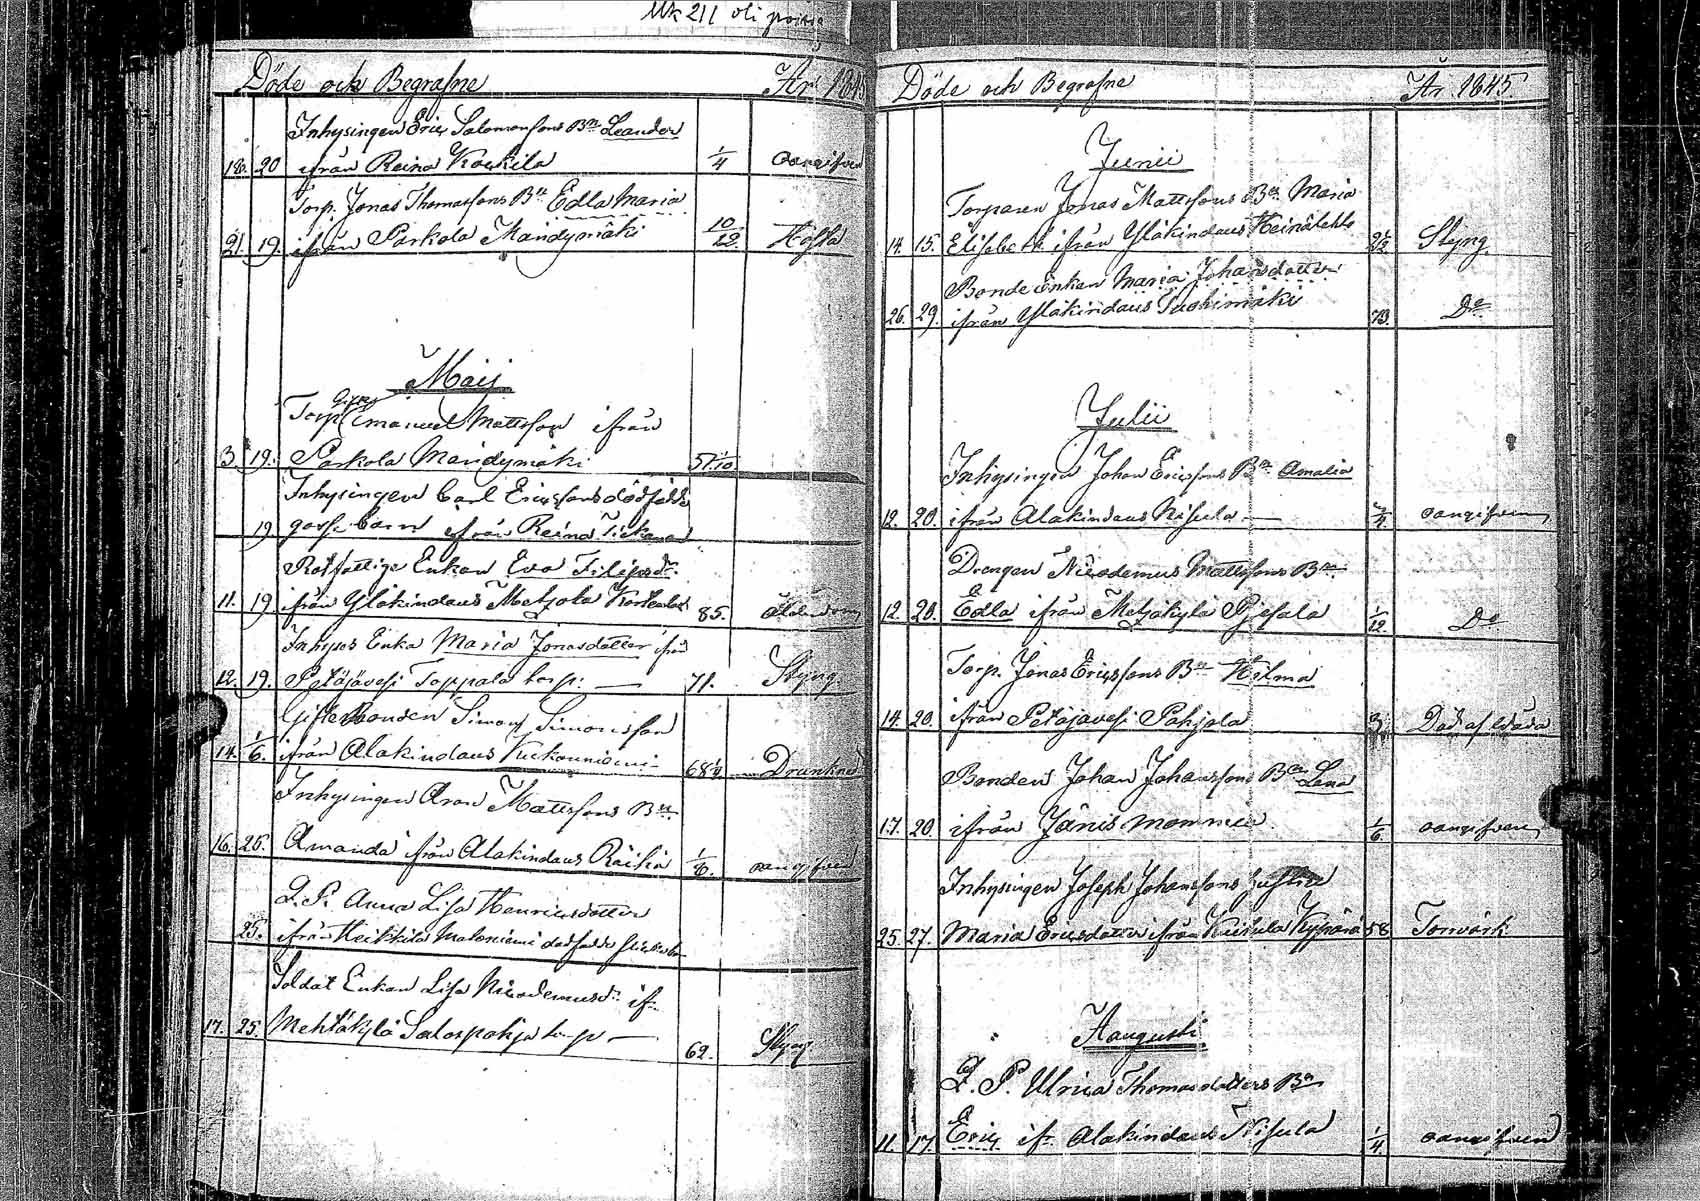 Uk 211 oli poissa
Döde och Begrafne År 1845
Inhysingen Eric Salomonssons Bn Leander
18. 20 ifrån Reina Koskila 1/4 oangifven
Torp. Jonas Thomassons Bn Edla Maria
21. 19. ifrån Parkola Mändymäki 10/12 Hosta
Maij
Gifte
Torp. Emanuel Mattsson ifrån
3. 19. Parkola Mändymäki 51 1/10
Inhysingen Carl Ericssons dödfödda
19 gosse barn ifrån Reina
Rotfattige Enkan Eva Filipsdr
11. 19 ifrån Yläkindaus Metzola 85. Ålderdom
Inhyses Enka Maria Jonasdotter ifrån
12. 19. Petäjävesi Toppala torp. 71. Styng
Gifte Bonden Simon Simonsson
14. 1/6. ifrån Alakindaus 68 Drunknad
Inhysingen Aron Mattssons Bn
16. 25. Amanda ifrån Alakindaus Räihä 1/6. oangifven
L. P. Anna Lisa Henricsdotter
25. ifrån Heikkilä Matoniemi dödfödde
Soldat Enkan Lisa Nicodemusdr if.
17. 25. Mehtäkylä Salospohja torp 62. Styng
Döde och Begrafne År 1845
Junii
Torparen Jonas Mattssons Bn Maria
14. 15. Elisabeth ifrån Yläkindaus Heinälehto 2 1/2 Styng.
Bonde Enkan Maria Johansdotter
26. 29. ifrån Yläkindaus Tuohimäki 73. Do
Julii
Inhysingen Johan Ericssons Bn Amalia
12. 20. ifrån Alakindaus Nisula 3/4 oangifven
Drengen Nicodemus Mattssons Bn
12. 20. Edla ifrån Metzäkylä Pjesala 1/12 Do
Torp. Jonas Ericssons Bn Hilma
14. 20. ifrån Petäjävesi Pohjola 3/ Död af Våda
Bonden Johan Johanssons Bn Lena
17. 20. ifrån Jänis Mommila 1/6 oangifven
Inhysingen Joseph Johanssons hustru
25. 27. Maria Ericsdotter ifrån Kuisula Kypärä 58 Torrvärk
Haugusti
L. P. Ulrica Thomasdotters Bn
11. 17. Eric if. Alakindaus Nisula 1/4 oangifven